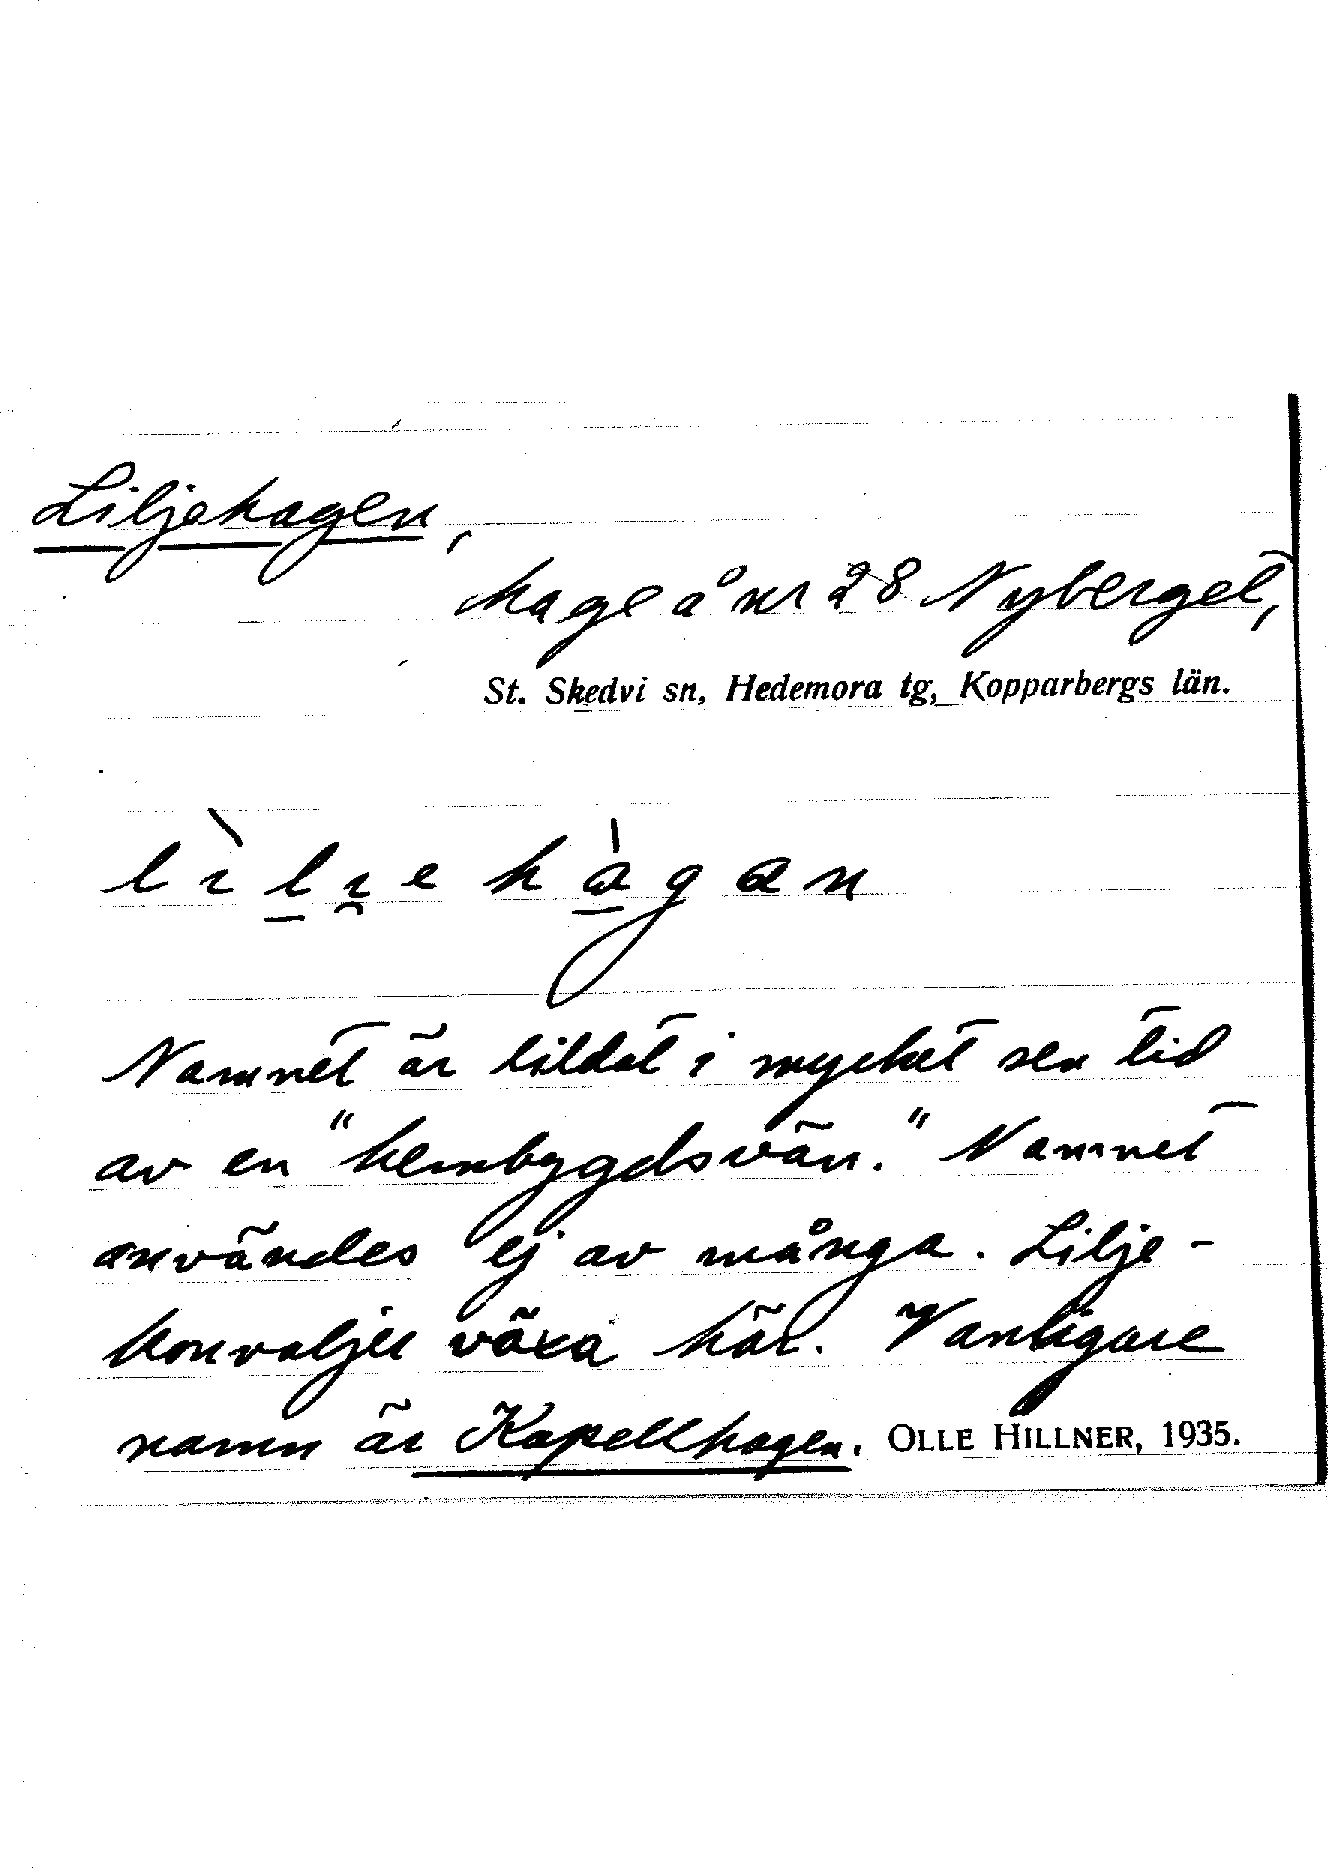 Liljehagen,
hage å nr 28 Nyberget,
St. Skedvi sn, Hedemora tg, Kopparbergs län.
lìlı̯ehàgan
Namnet är bildat i mycket sen tid
av en "hembygdsvän." Namnet
användes ej av många. Lilje-
konvaljer växa här. Vanligare
namn är Kapellhagen. OLLE HILLNER, 1935.